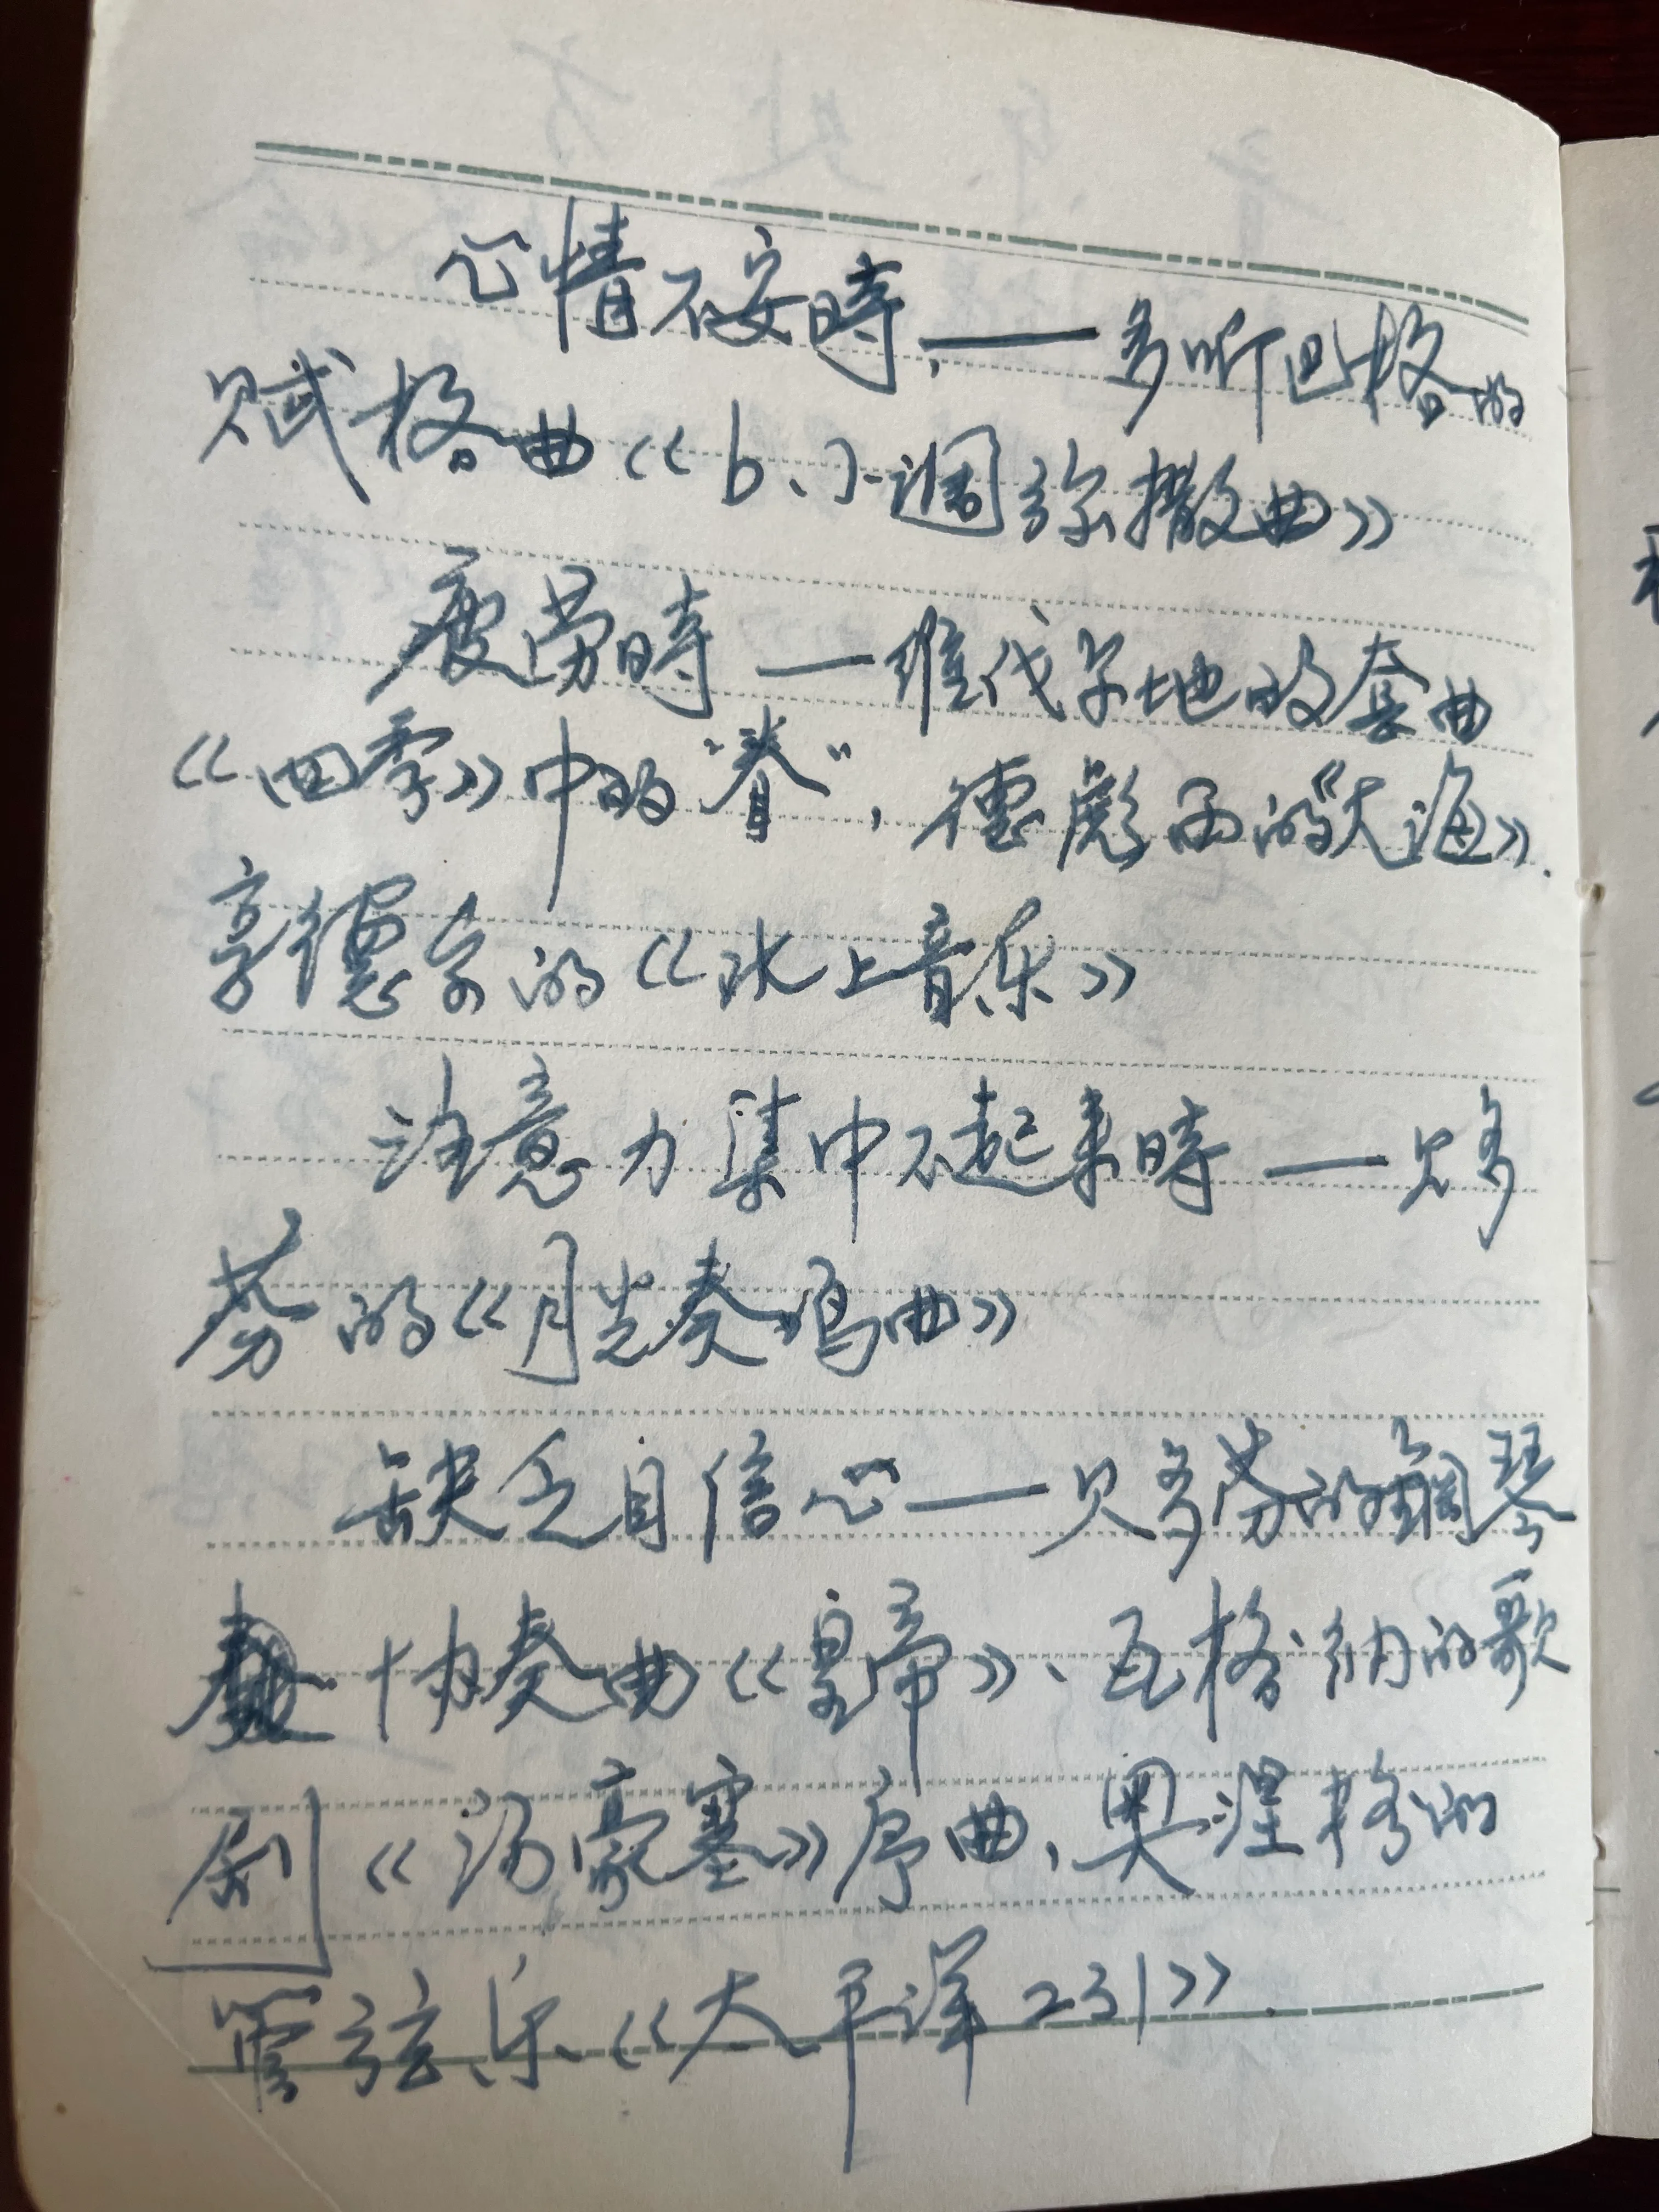 心情不安時,——多听巴格的
赋格曲《b小調弥撒曲》
疲劳時——维代尔地的套曲
《四季》中的“春”,德彪西的《大海》.
享德尔的《水上音乐》
注意力集中不起来時——贝多
芬的《月光奏鸣曲》
缺乏自信心——贝多芬的鋼琴
协奏曲《皇帝》、瓦格纳的歌
剧《汤豪塞》序曲,奥涅格的
管弦乐《太平洋231》.